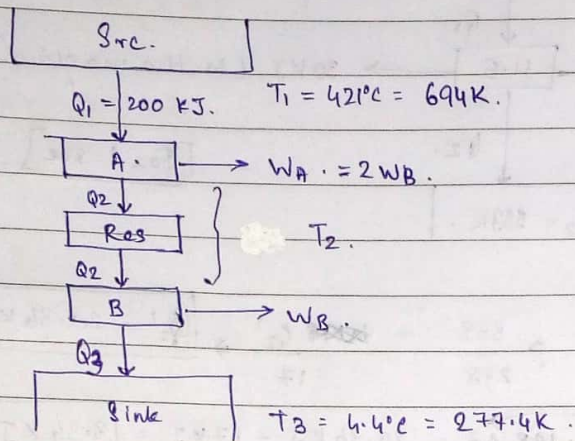 Src.
Q1 = 200 KJ. T1 = 421°C = 694K.
A. WA. = 2WB.
Q2
Res T2.
Q2
B WB.
Q3
Sink T3 = 4.4°C = 277.4K.